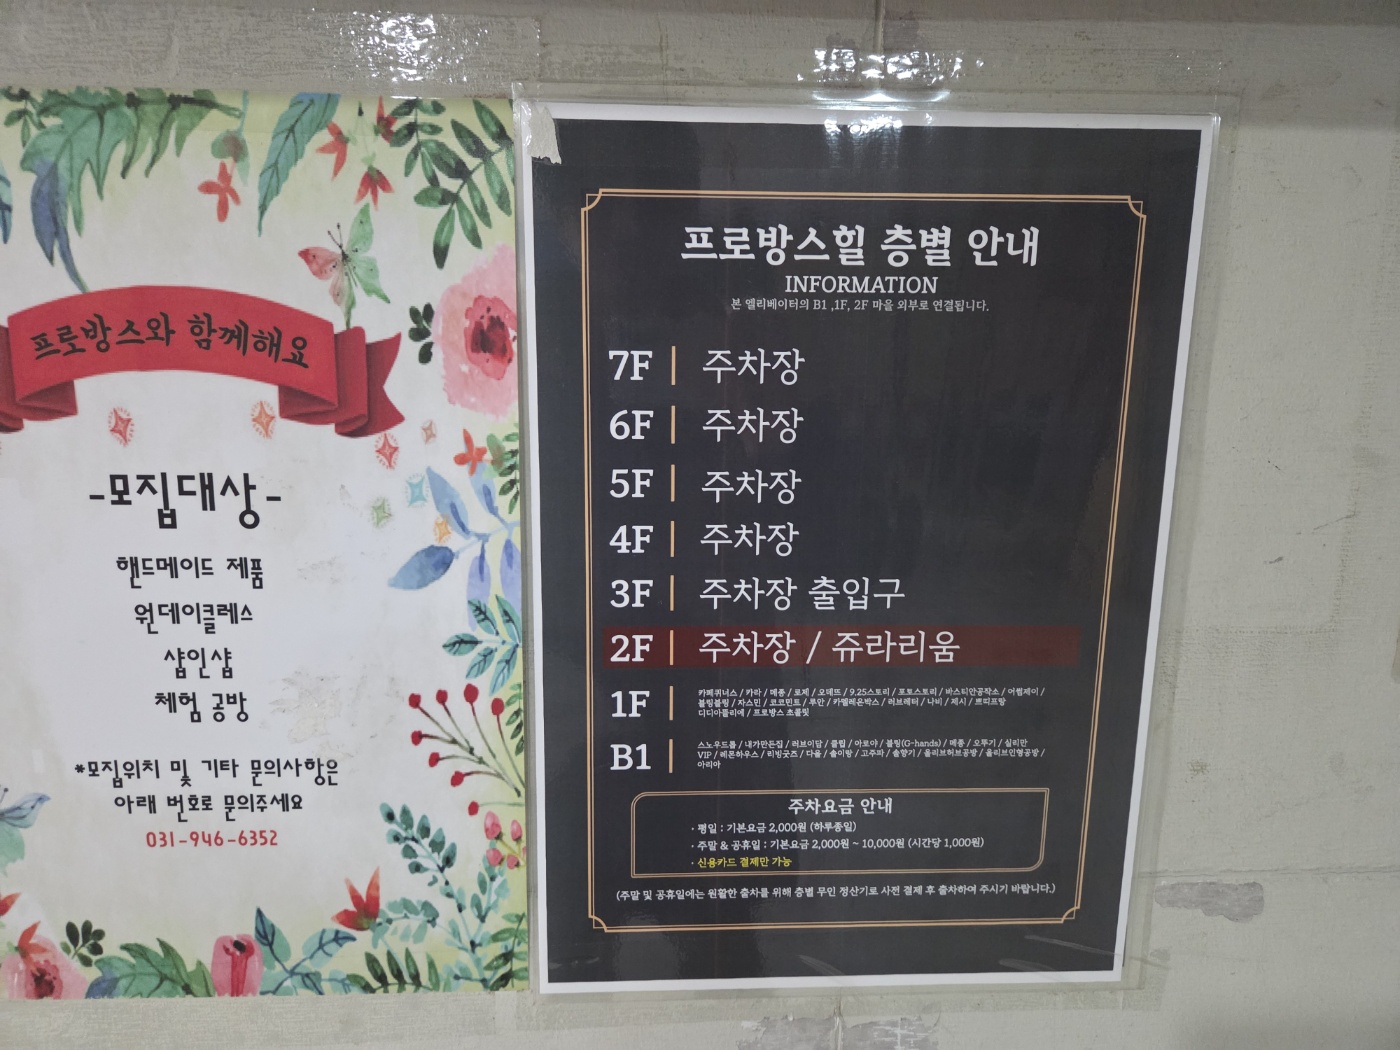 프로방스와 함께해요
-모집대상-
핸드메이드 제품
원데이클레스
샵인샵
체험 공방
*모집위치 및 기타 문의사항은
아래 번호로 문의주세요
031-946-6352
프로방스힐 층별 안내
INFORMATION
본 엘리베이터의 B1 ,1F, 2F 마을 외부로 연결됩니다.
7F | 주차장
6F | 주차장
5F | 주차장
4F | 주차장
3F | 주차장 출입구
2F | 주차장 / 쥬라리움
1F | 카페퀴너스 / 카라 / 메종 / 로제 / 오데뜨 / 9.25스토리 / 포토스토리 / 바스티안공작소 / 어썸제이 /
블링블링 / 자스민 / 코코민트 / 루안 / 카멜레온박스 / 러브레터 / 나비 / 제시 / 쁘띠프랑
디디아뜰리에 / 프로방스 초콜릿
B1 | 스노우드롭 / 내가만든집 / 러브이담 / 클립 / 아로아 / 볼링(G-hands) / 메종 / 오뚜기 / 실리만
VIP / 레몬하우스 / 리빙굿즈 / 다올 / 솔이랑 / 고주파 / 솔향기 / 올리브허브공방 / 올리브인형공방 /
아리아
주차요금 안내
· 평일 : 기본요금 2,000원 (하루종일)
· 주말 & 공휴일 : 기본요금 2,000원 ~ 10,000원 (시간당 1,000원)
· 신용카드 결제만 가능
(주말 및 공휴일에는 원활한 출차를 위해 층별 무인 정산기로 사전 결제 후 출차하여 주시기 바랍니다.)